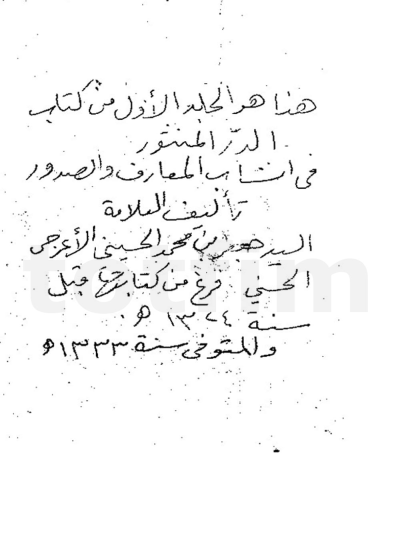 هذا هو المجلد الأول من كتاب
الدرّ المنثور
في انساب المعارف والصدور
تأليف العلامة
السيد جعفر بن محمد الحسيني الأعرجي
الحسيني فرغ من كتابتها قبل
سنة ١٣٢٤ هـ.
والمتوفى سنة ١٣٣٣ هـ